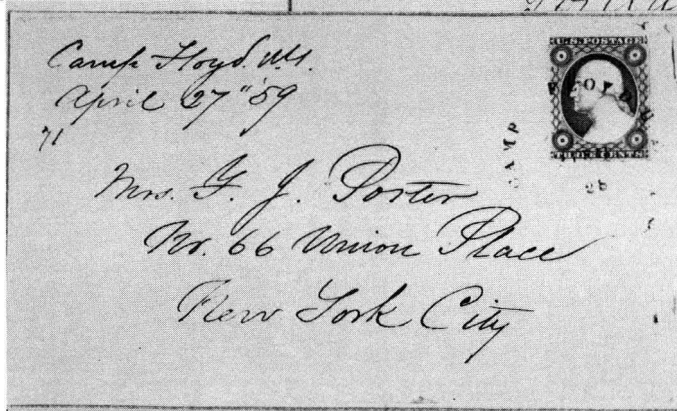 Camp Floyd. U.T.
April 27" 59
71
U.S. POSTAGE
THREE CENTS
CAMP FLOYD
28
Mrs. F. J. Porter
No. 66 Union Place
New York City